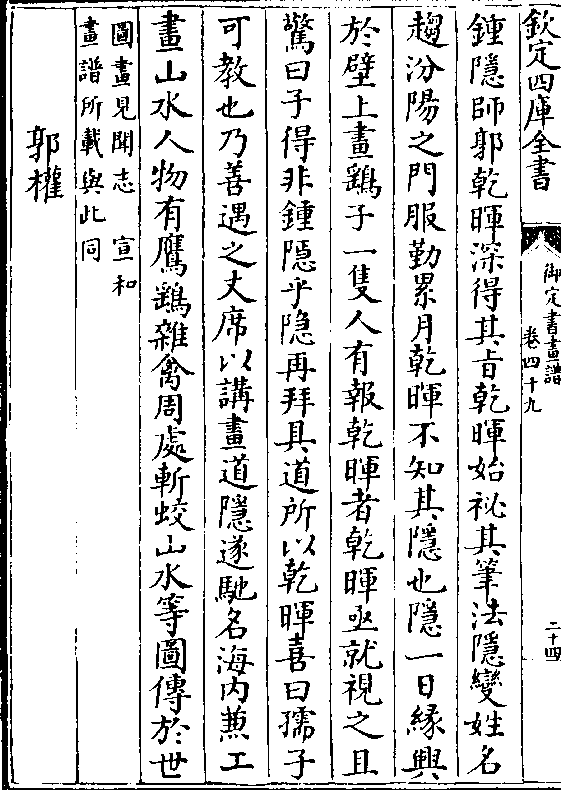 欽定四庫全書
御定書畫譜
卷四十九
二十四
鍾隱師郭乾暉深得其旨乾暉始祕其筆法隱變姓名
趨汾陽之門服勤累月乾暉不知其隱也隱一日緣興
於壁上畫鷂子一隻人有報乾暉者乾暉亟就視之且
驚曰子得非鍾隱乎隐再拜具道所以乾暉喜曰孺子
可教也乃善遇之丈席以講畫道隱遂馳名海内兼工
畫山水人物有鷹鷂雜禽周處斬蛟山水等圖傳於世
圖畫見聞志 宣和
畫譜所載與此同
郭權